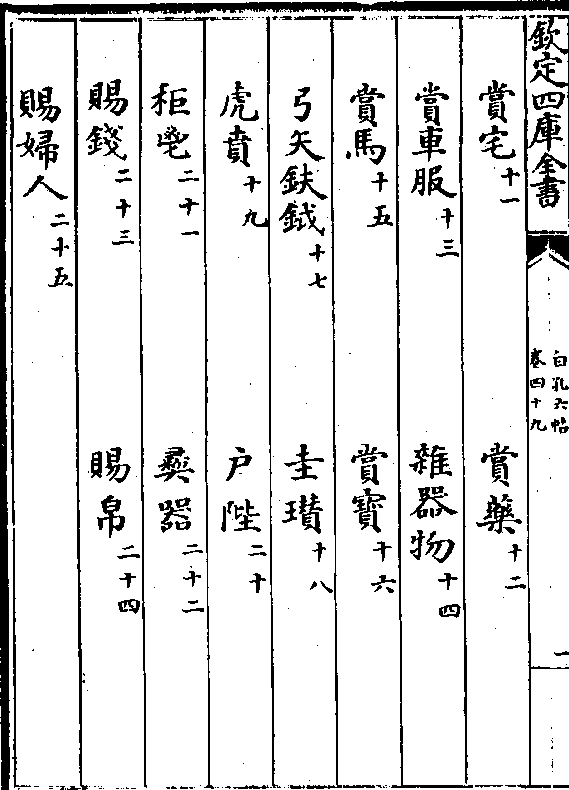 欽定四庫全書
白孔六帖
卷四十九
一
賞宅十一　賞藥十二
賞車服十三　雜器物十四
賞馬十五　賞寳十六
弓矢鈇鉞十七　圭瓉十八
虎賁十九　户陛二十
秬鬯二十一　彛器二十二
賜錢二十三　賜帛二十四
賜婦人二十五